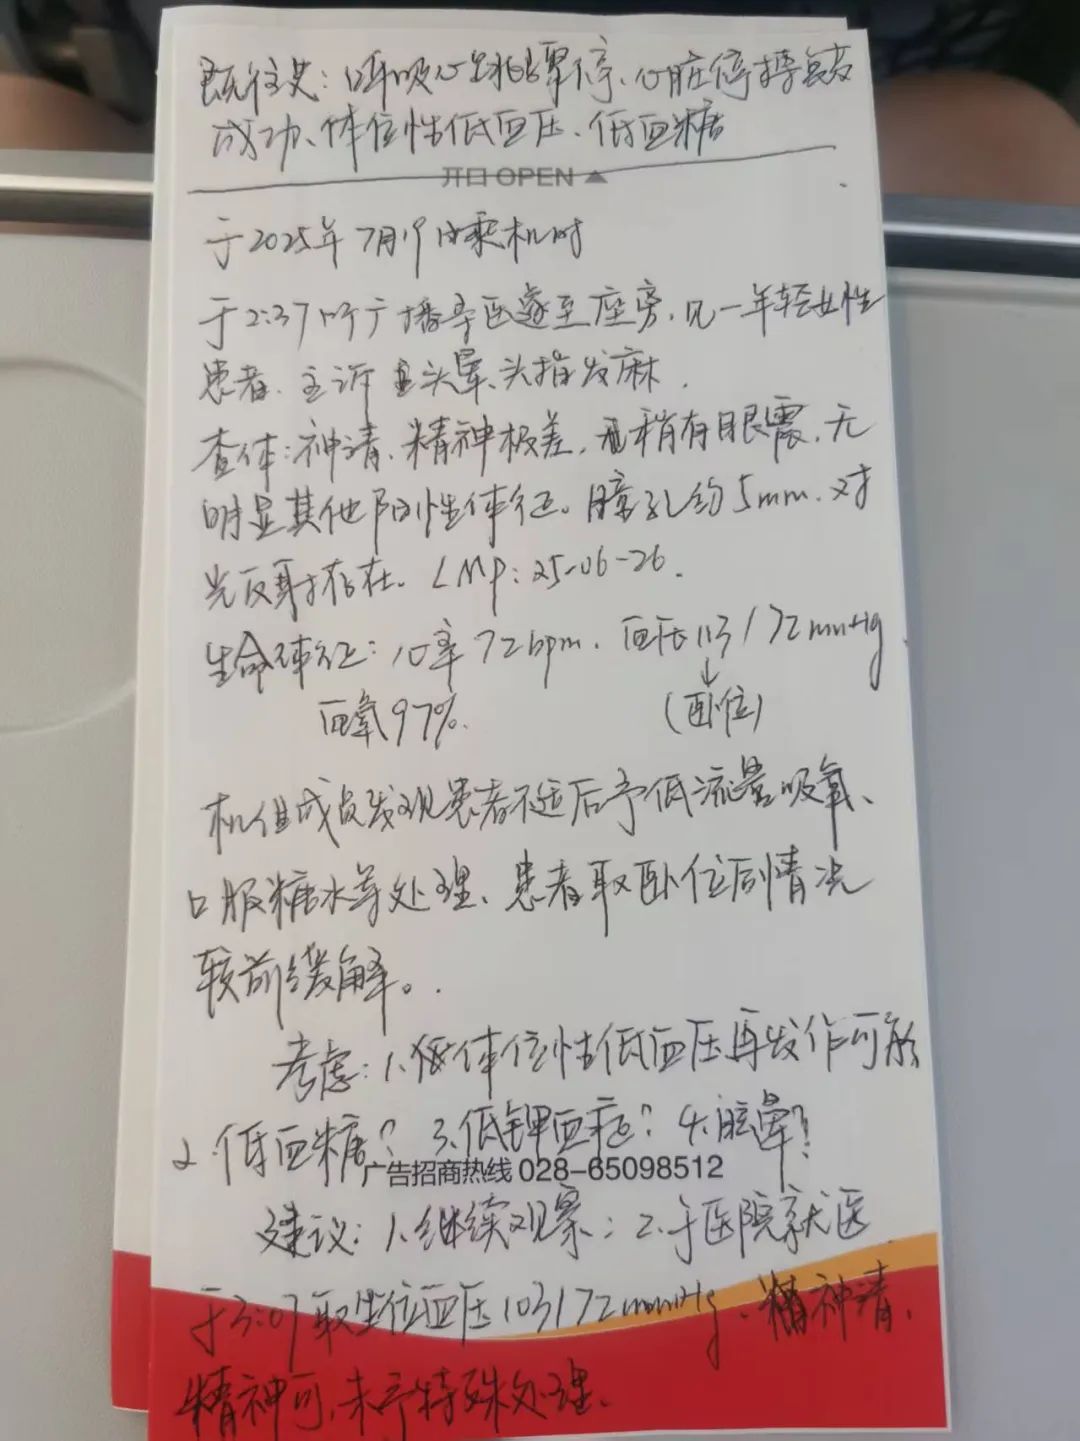 既往史：呼吸心跳骤停、心脏停搏复苏
成功、体位性低血压、低血糖
开口 OPEN
于2025年7月19日乘机时
于2:37听广播寻医遂至座旁，见一年轻女性
患者，主诉 头晕、头指发麻．
查体：神清、精神极差，稍有眼震，无
明显其他阳性体征。瞳孔约5mm．对
光反射存在。LMP：25-06-26．
生命体征：心率72bpm．血压113/72mmHg．
血氧97%．
(卧位)
机组成员发现患者不适后予低流量吸氧、
口服糖水等处理、患者取卧位后情况
较前缓解。
考虑：1.体位性低血压再发作可能
2.低血糖？3.低钾血症？4.眩晕？
广告招商热线 028-65098512
建议：1.继续观察；2.于医院就医
于3:07取坐位血压103/72mmHg、精神清，
精神可，未予特殊处理．